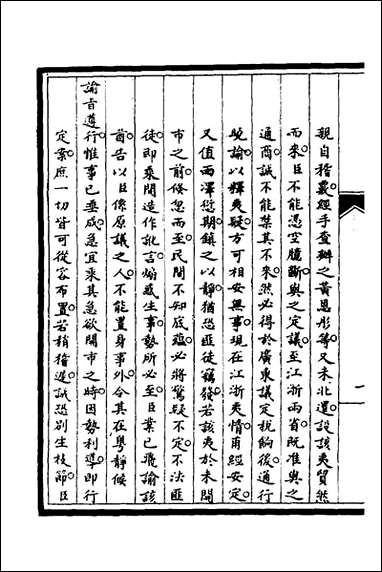 親自稽覈經手查辦之黃恩彤等又未北還設該夷貿然
而來臣不能憑空臆斷與之定議至江浙兩省既准與之
通商誠不能禁其不來然必得於廣東議定稅餉後通行
曉諭以釋夷疑方可相安無事現在江浙夷情甫經安定
又值雨澤愆期鎮之以靜猶恐匪徒竊發若該夷於未開
市之前倏忽而至民間不知底蘊必將驚疑不定不法匪
徒即乘間造作訛言煽惑生事勢所必至臣業已飛諭該
酋告以臣係原議之人不能置身事外令其在粵靜候
諭旨遵行惟事已垂成急宜乘其急欲開市之時因勢利導即行
定案庶一切皆可從容布置若稍稽遲誠恐別生枝節臣
一